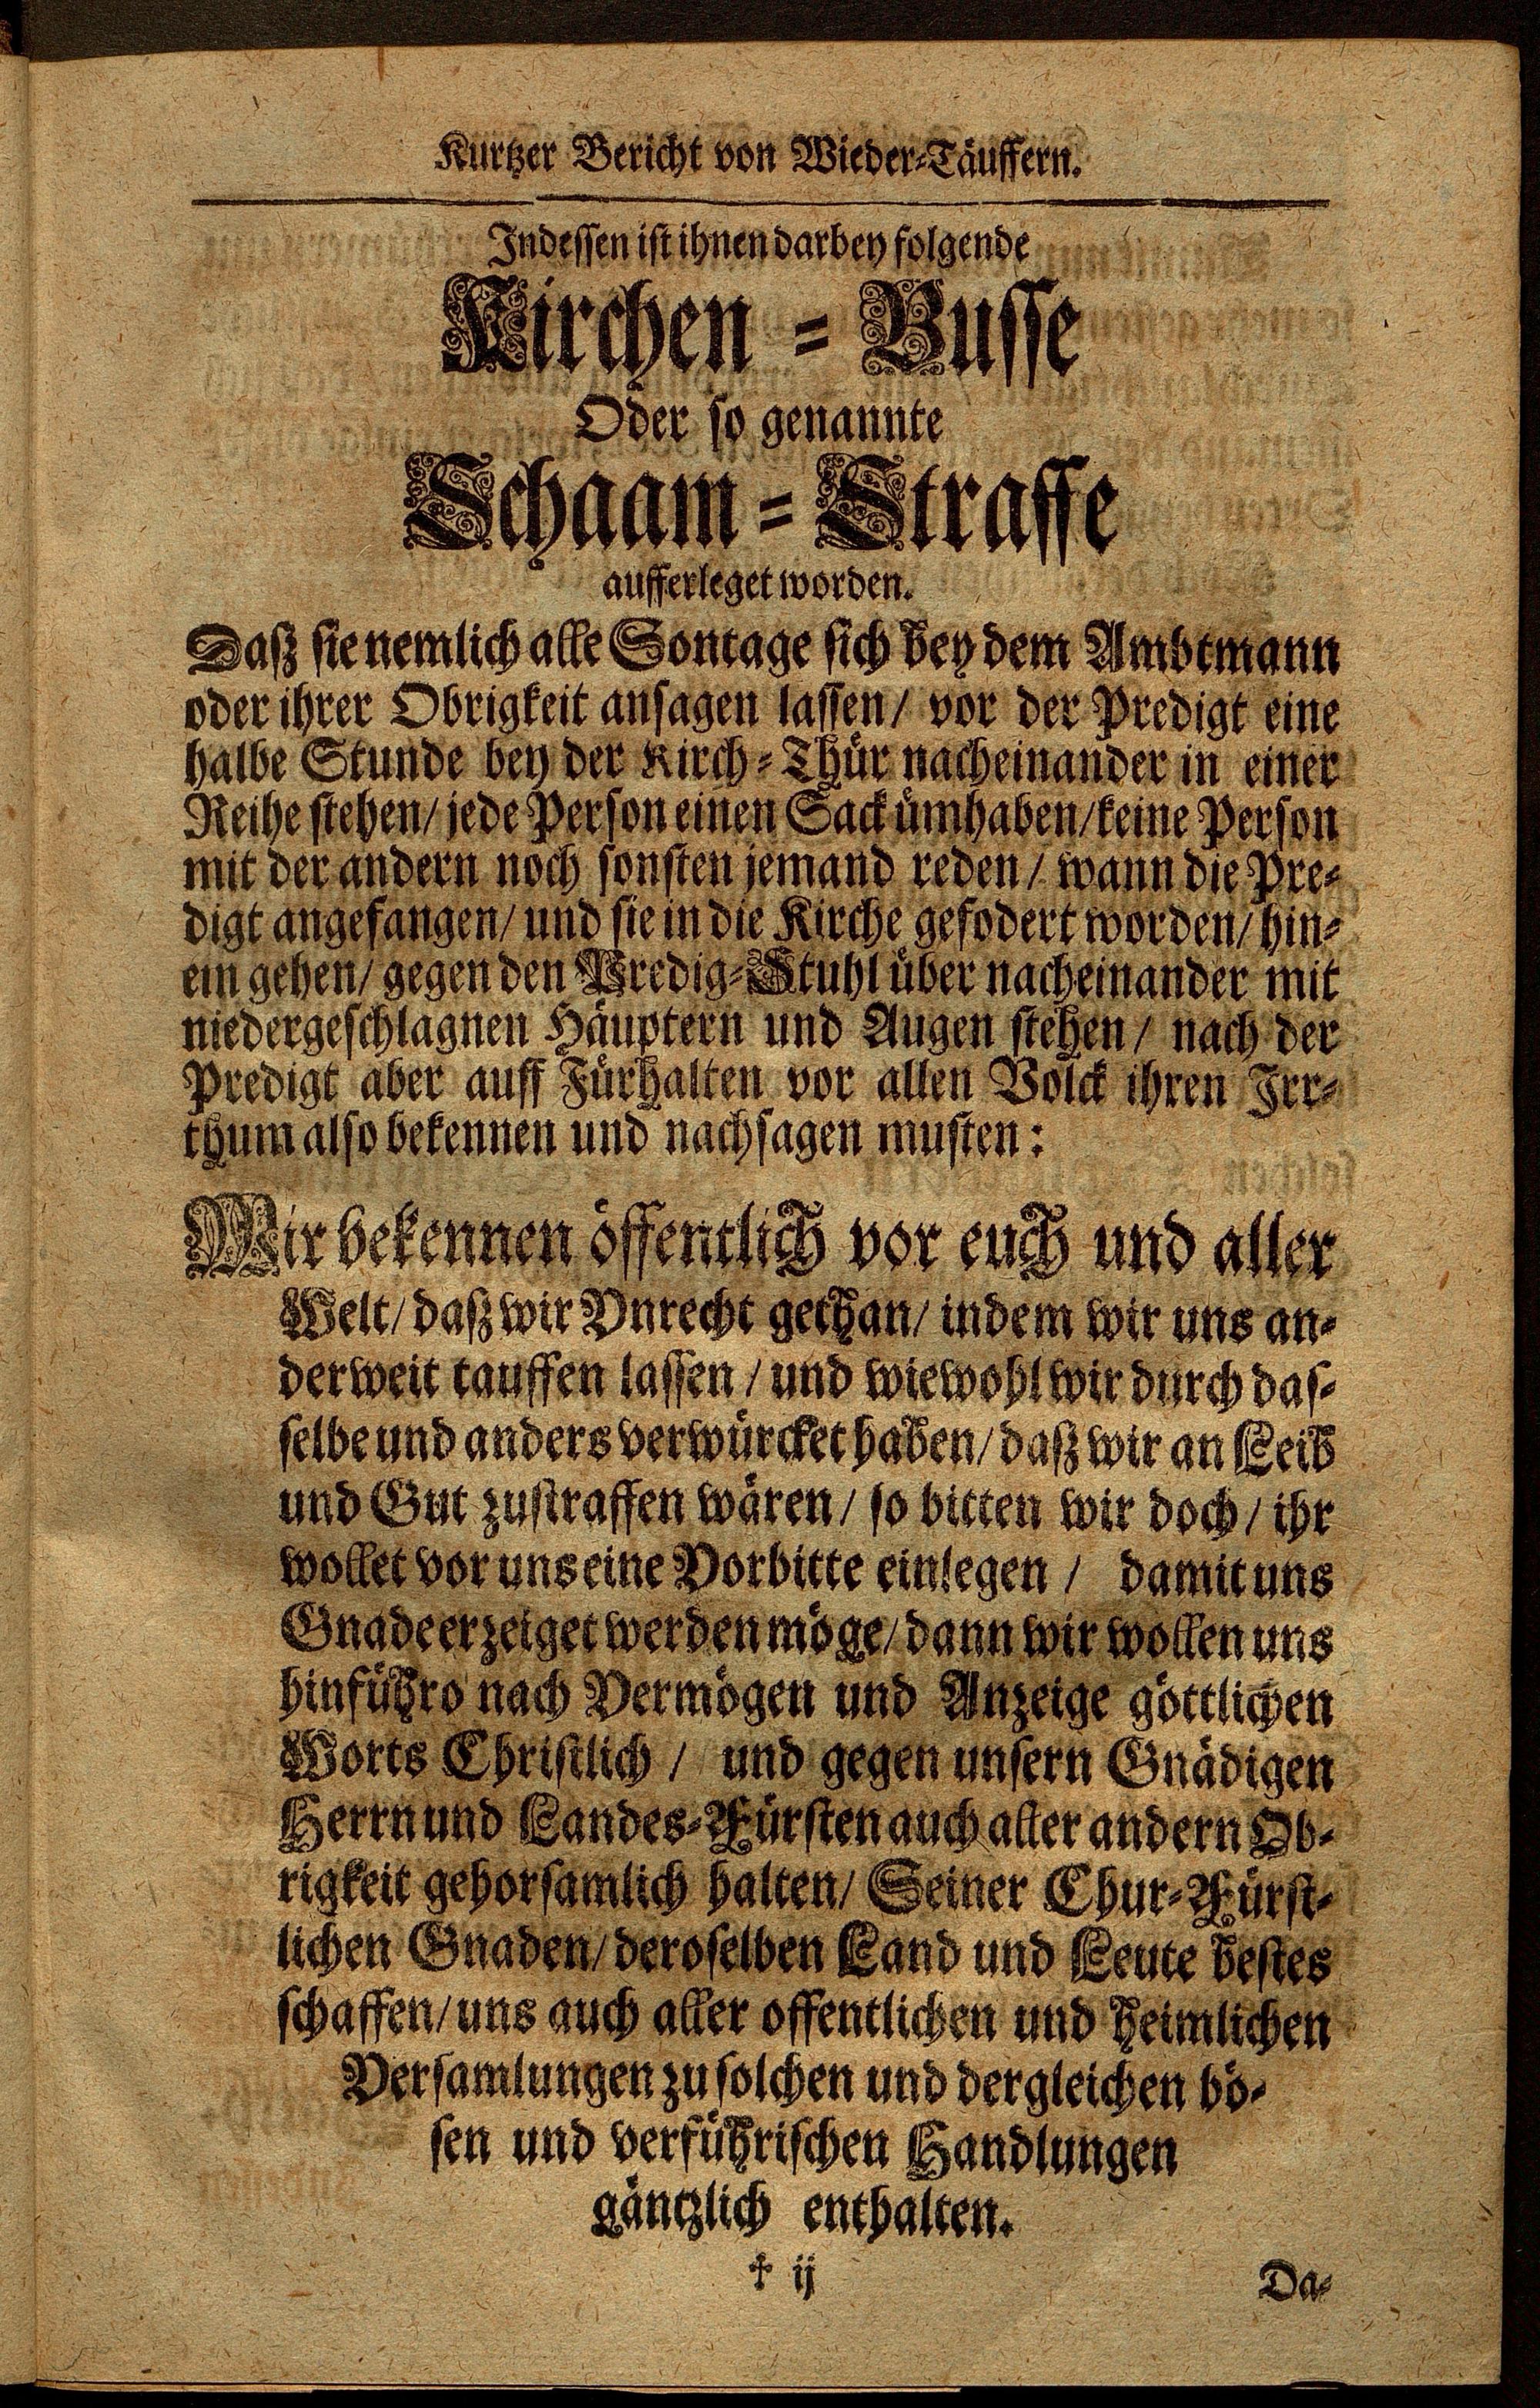 Kurtzer Bericht von Wieder-Täuffern.
Indessen ist ihnen darbey folgende
Kirchen-Busse
Oder so genannte
Schaam-Straffe
aufferleget worden.
Daß sie nemlich alle Sontage sich bey dem Ambtmann
oder ihrer Obrigkeit ansagen lassen/ vor der Predigt eine
halbe Stunde bey der Kirch-Thür nacheinander in einer
Reihe stehen/ jede Person einen Sack ümhaben/ keine Person
mit der andern noch sonsten jemand reden/ wann die Pre-
digt angefangen/ und sie in die Kirche gefodert worden/ hin-
ein gehen/ gegen den Predig-Stuhl über nacheinander mit
niedergeschlagnen Häuptern und Augen stehen/ nach der
Predigt aber auff Fürhalten vor allen Volck ihren Irr-
thum also bekennen und nachsagen musten:
Wir bekennen öffentlich vor euch und aller
Welt/ daß wir Vnrecht gethan/ indem wir uns an-
derweit tauffen lassen/ und wiewohl wir durch das-
selbe und anders verwürcket haben/ daß wir an Leib
und Gut zustraffen wären/ so bitten wir doch/ ihr
wollet vor uns eine Vorbitte einlegen/ damit uns
Gnade erzeiget werden möge/ dann wir wollen uns
hinführo nach Vermögen und Anzeige göttlichen
Worts Christlich/ und gegen unsern Gnädigen
Herrn und Landes-Fürsten auch aller andern Ob-
rigkeit gehorsamlich halten/ Seiner Chur-Fürst-
lichen Gnaden/ deroselben Land und Leute bestes
schaffen/ uns auch aller offentlichen und heimlichen
Versamlungen zu solchen und dergleichen bö-
sen und verführischen Handlungen
gäntzlich enthalten.
† ij
Da-